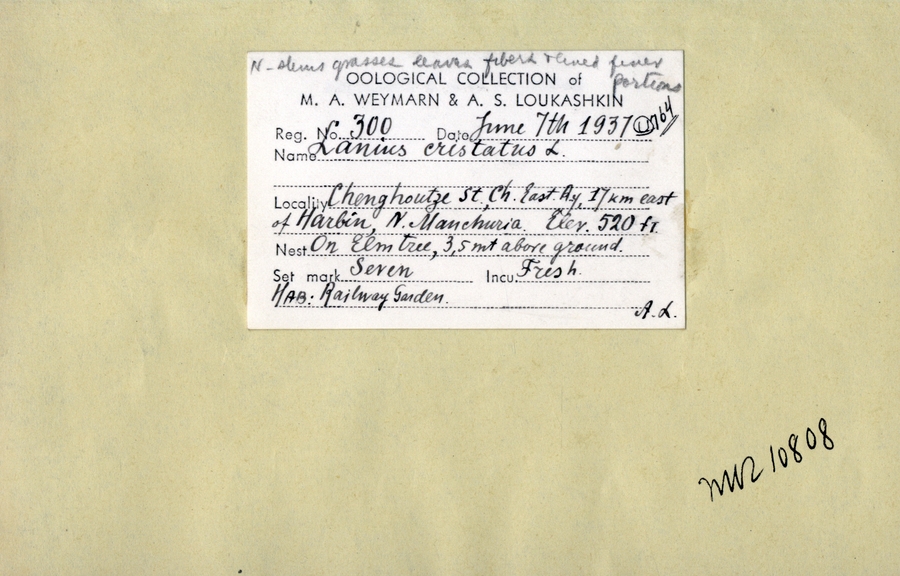 N - stems grasses leaves fibers & lined finer
portions
OOLOGICAL COLLECTION of
M. A. WEYMARN & A. S. LOUKASHKIN
Reg. No. 300 Date June 7th 1937
Name Lanius cristatus L.
Locality Chenghoutze St, Ch. East. Ry, 17 km east
of Harbin, N. Manchuria. Elev. 520 ft.
Nest On Elm tree, 3,5 mt above ground.
Set mark Seven Incu. Fresh.
HAB: Railway Garden.
A. L.
10808